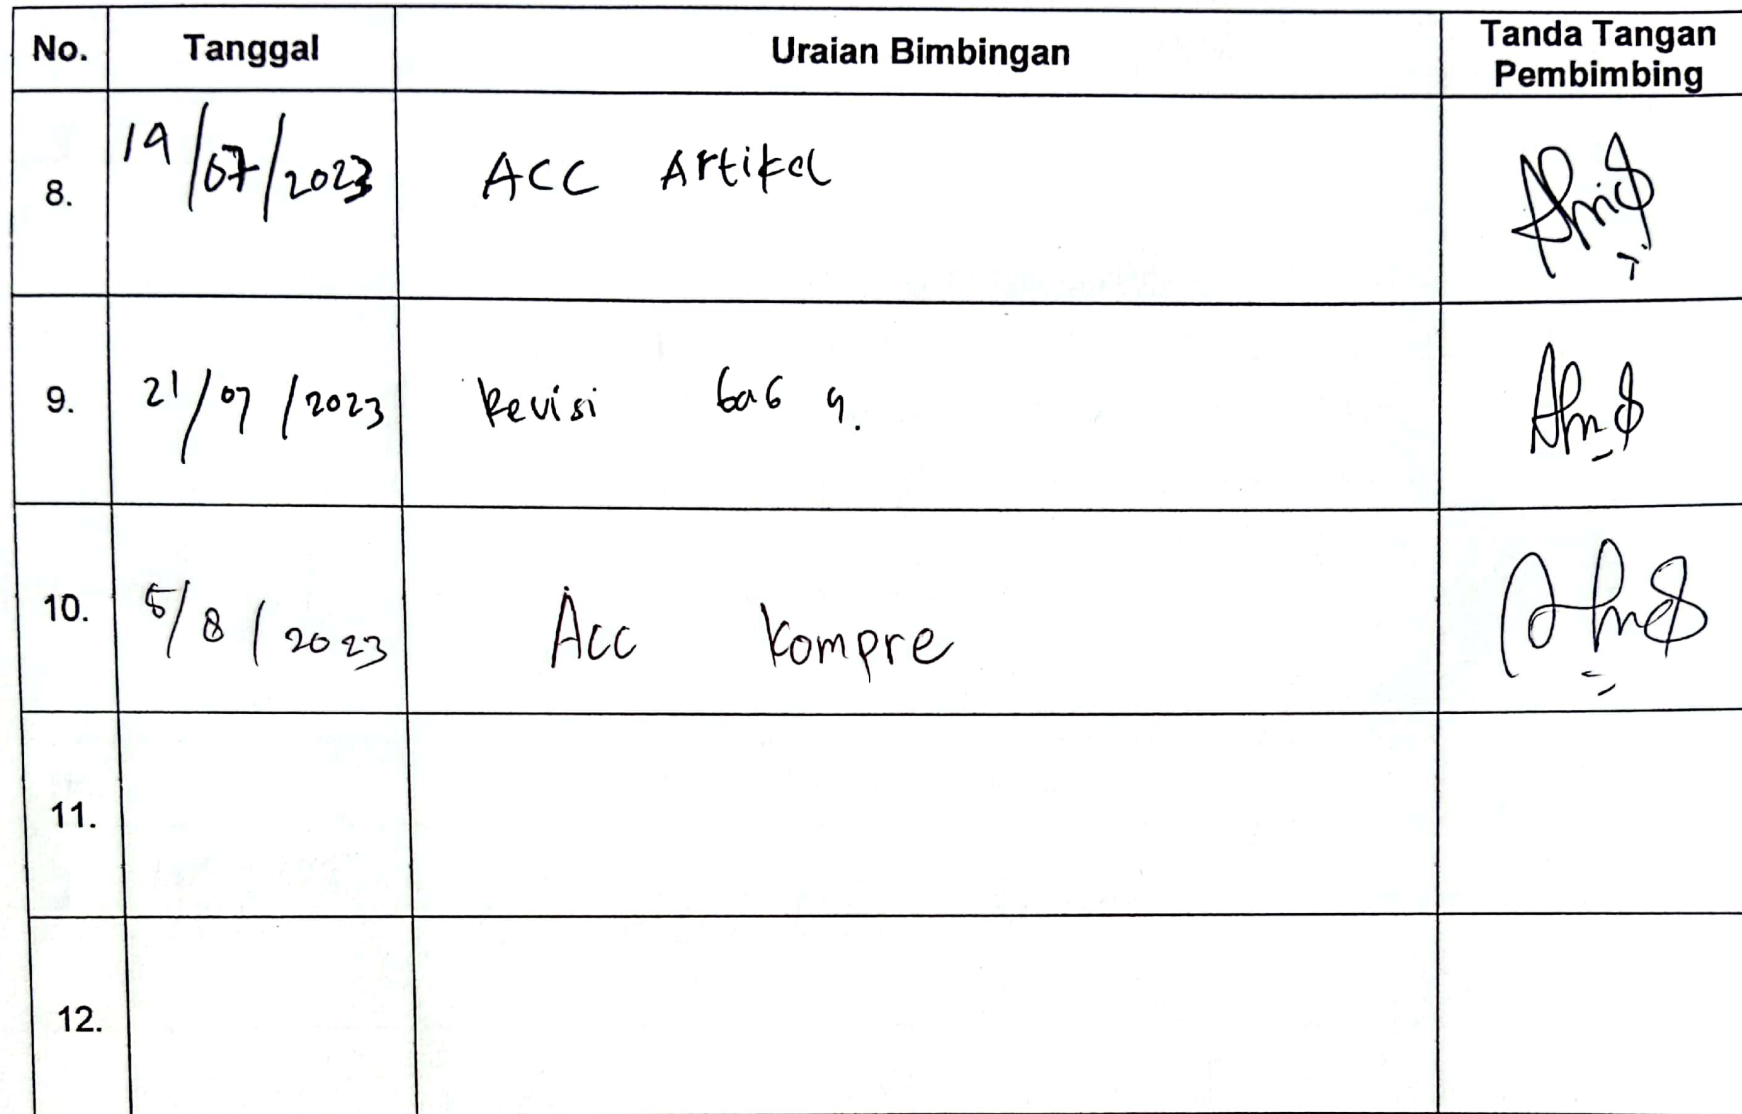 No. Tanggal Uraian Bimbingan Tanda Tangan
Pembimbing
8. 19/07/2023 ACC Artikel
9. 21/07/2023 Revisi bab 4.
10. 5/8/2023 Acc kompre
11.
12.